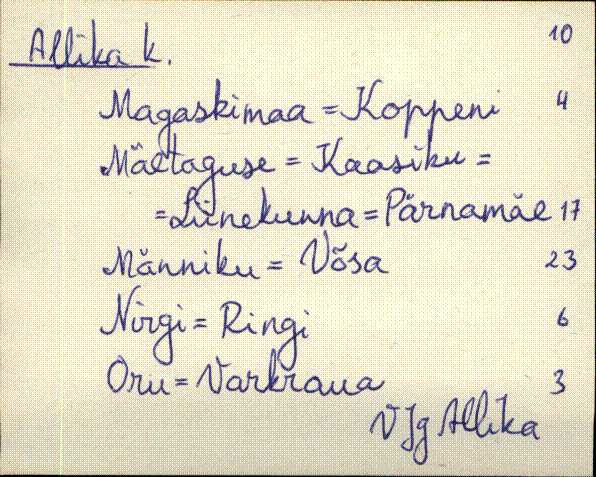 Allika k. 10
Magaskimaa = Koppeni 4
Mäetaguse = Kaasiku =
= Liinekunna = Pärnamäe 17
Männiku = Võsa 23
Nirgi = Ringi 6
Oru = Varkraua 3
VJg Allika